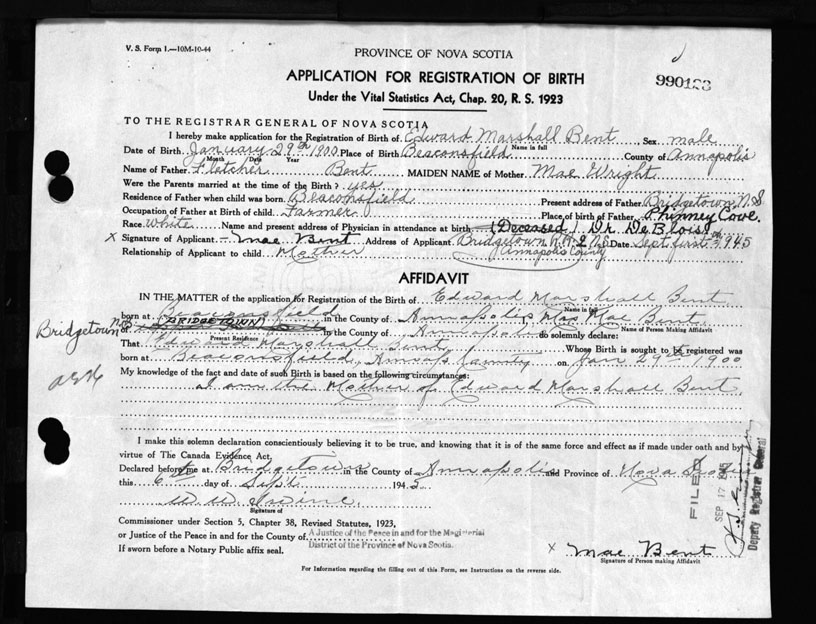 V. S. Form 1.—10M-10-44
PROVINCE OF NOVA SCOTIA
990123
APPLICATION FOR REGISTRATION OF BIRTH
Under the Vital Statistics Act, Chap. 20, R. S. 1923
TO THE REGISTRAR GENERAL OF NOVA SCOTIA
I hereby make application for the Registration of Birth of Edward Marshall Bent Sex male
Name in full
Date of Birth January 29th 1900 Place of Birth Beaconsfield County of Annapolis
Month Date Year
Name of Father Fletcher Bent MAIDEN NAME of Mother Mae Wright
Were the Parents married at the time of the Birth? yes
Residence of Father when child was born Beaconsfield Present address of Father Bridgetown N.S
Occupation of Father at Birth of child Farmer Place of birth of Father Phinney Cove.
Race white Name and present address of Physician in attendance at birth (Deceased) Dr. DeBlois
X Signature of Applicant Mae Bent Address of Applicant Bridgetown Date Sept first 1945
Relationship of Applicant to child Mother Annapolis County
AFFIDAVIT
IN THE MATTER of the application for Registration of the Birth of Edward Marshall Bent
Name in full
born at Beaconsfield in the County of Annapolis, Mrs Mae Bent
Name of Person Making Affidavit
Bridgetown N.S
of (BRIDGETOWN) in the County of Annapolis do solemnly declare:
Present Residence
That Edward Marshall Bent Whose Birth is sought to be registered was
born at Beaconsfield, Annap. County on Jan 29th 1900
My knowledge of the fact and date of such Birth is based on the following circumstances:
I am the Mother of Edward Marshall Bent.
I make this solemn declaration conscientiously believing it to be true, and knowing that it is of the same force and effect as if made under oath and by
virtue of The Canada Evidence Act.
Declared before me at Bridgetown in the County of Annapolis and Province of Nova Scotia
this 6th day of Sept 1945
W W Irvine
Signature of
Commissioner under Section 5, Chapter 38, Revised Statutes, 1923,
or Justice of the Peace in and for the County of
A Justice of the Peace in and for the Magisterial
District of the Province of Nova Scotia.
If sworn before a Notary Public affix seal.
X Mae Bent
Signature of Person making Affidavit
For Information regarding the filling out of this Form, see Instructions on the reverse side.
FILED
SEP 17 1945
Deputy Registrar General